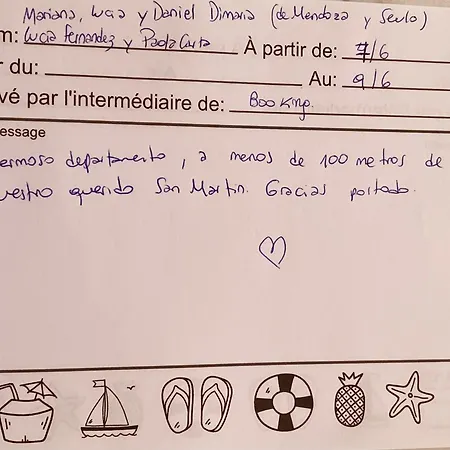 Mariana, Lucia y Daniel Dimaria (de Mendoza y Seulo)
m: Lucia Fernandez y Paola Curta À partir de: 7/6
r du: Au: 9/6
vé par l'intermédiaire de: Booking.
essage
ermoso departamento, a menos de 100 metros de
uestro querido San Martin. Gracias por todo.